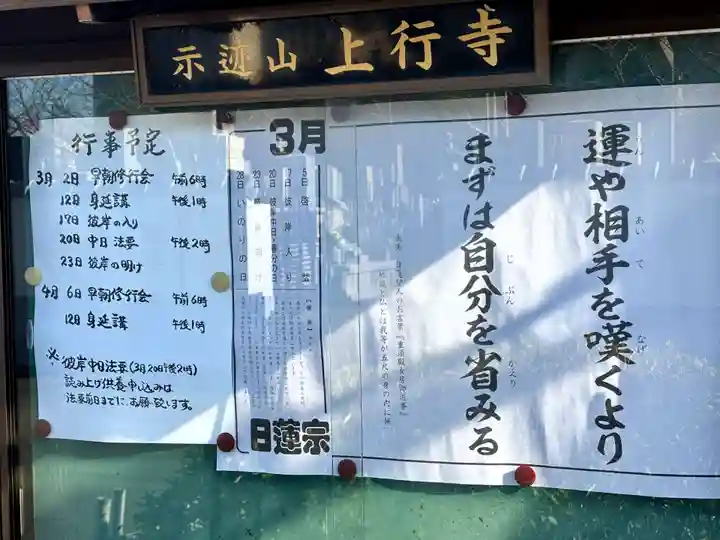 示迹山 上行寺
行事予定
3月 2日 早朝修行会 午前6時
12日 身延講 午後1時
17日 彼岸の入り
20日 中日法要 午後2時
23日 彼岸の明け
4月 6日 早朝修行会 午前6時
12日 身延講 午後1時
※彼岸中日法要(3月20日午後2時)
読み上げ供養申し込みは
法要前日までにお願い致します。
3月
5日 啓蟄
17日 彼岸入り
20日 彼岸中日・春分の日
23日 彼岸明け
28日 いのりの日
日蓮宗
運や相手を嘆くより
うん あいて なげ
まずは自分を省みる
じぶん かえり